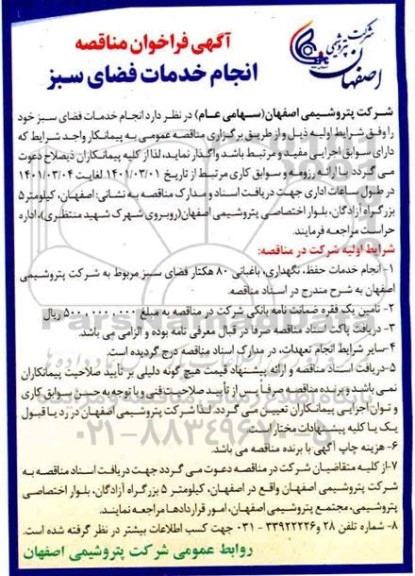 شرکت پتروشیمی
اصفهان
آگهی فراخوان مناقصه
انجام خدمات فضای سبز
شرکت پتروشیمی اصفهان(سهامی عام) در نظر دارد انجام خدمات فضای سبز خود
را وفق شرایط اولیه ذیل و از طریق برگزاری مناقصه عمومی به پیمانکار واجد شرایط که
دارای سوابق اجرایی مفید و مرتبط باشد واگذار نماید، لذا از کلیه پیمانکاران ذیصلاح دعوت
می گردد با ارائه رزومه و سوابق کاری مرتبط از تاریخ ۱۴۰۱/۰۳/۰۱ لغایت ۱۴۰۱/۰۳/۰۴
در طول ساعات اداری جهت دریافت اسناد و مدارک مناقصه به نشانی: اصفهان، کیلومتر۵
بزرگراه آزادگان، بلوار اختصاصی پتروشیمی اصفهان(روبروی شهرک شهید منتظری)، اداره
حراست مراجعه فرمایند.
شرایط اولیه شرکت در مناقصه:
۱- انجام خدمات حفظ، نگهداری، باغبانی ۸۰ هکتار فضای سبز مربوط به شرکت پتروشیمی
اصفهان به شرح مندرج در اسناد مناقصه.
۲- تامین یک فقره ضمانت نامه بانکی شرکت در مناقصه به مبلغ ۵۰۰,۰۰۰,۰۰۰ ریال
۳- دریافت پاکت اسناد مناقصه صرفا در قبال معرفی نامه بوده و الزامی می باشد.
۴-سایر شرایط انجام تعهدات، در مدارک اسناد مناقصه درج گردیده است
۵-دریافت اسناد مناقصه و ارائه پیشنهاد قیمت هیچ گونه دلیلی بر تأیید صلاحیت پیمانکاران
نمی باشد و برنده مناقصه صرفاً پس از تأیید صلاحیت فنی و با توجه به حسن سوابق کاری
و توان اجرایی پیمانکاران تعیین می گردد. لذا شرکت پتروشیمی اصفهان در رد یا قبول
یک یا کلیه پیشنهادات مختار است.
۶- هزینه چاپ آگهی با برنده مناقصه می باشد.
۷-از کلیه متقاضیان شرکت در مناقصه دعوت می گردد جهت دریافت اسناد مناقصه به
شرکت پتروشیمی اصفهان واقع در اصفهان، کیلومتر ۵ بزرگراه آزادگان، بلوار اختصاصی
پتروشیمی، مجتمع پتروشیمی اصفهان، امور قراردادها مراجعه نمایند.
۸- شماره تلفن ۲۸ و ۳۳۹۲۲۲۲۶ - ۰۳۱ جهت کسب اطلاعات بیشتر در نظر گرفته شده است.
روابط عمومی شرکت پتروشیمی اصفهان